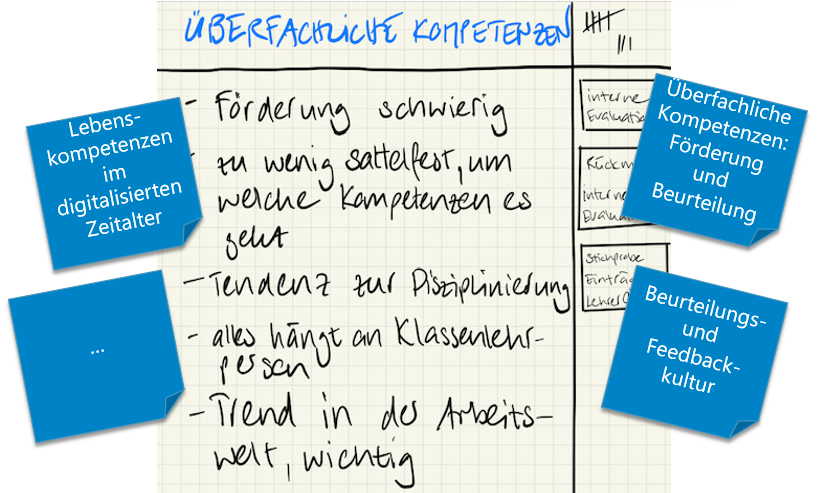 ÜBERFACHLICHE KOMPETENZEN
- Förderung schwierig
- zu wenig sattelfest, um
welche Kompetenzen es
geht
- Tendenz zur Disziplinierung
- alles hängt an Klassenlehr-
personen
- Trend in der Arbeits-
welt, wichtig
interne
Rückm
interne
Stichprobe
Lebens-
kompetenzen
im
digitalisierten
Zeitalter
...
Überfachliche
Kompetenzen:
Förderung
und
Beurteilung
Beurteilungs-
und
Feedback-
kultur